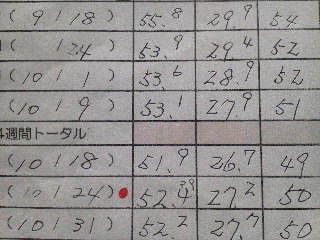 ( 9 / 18 ) 55.8 29.9 54
( / 24 ) 53.9 29.4 52
( 10 / 1 ) 53.6 28.9 52
( 10 / 9 ) 53.1 27.9 51
4週間トータル
( 10 / 18 ) 51.9 26.7 49
( 10 / 24 ) 52.4 27.2 50
( 10 / 31 ) 52.2 27.7 50